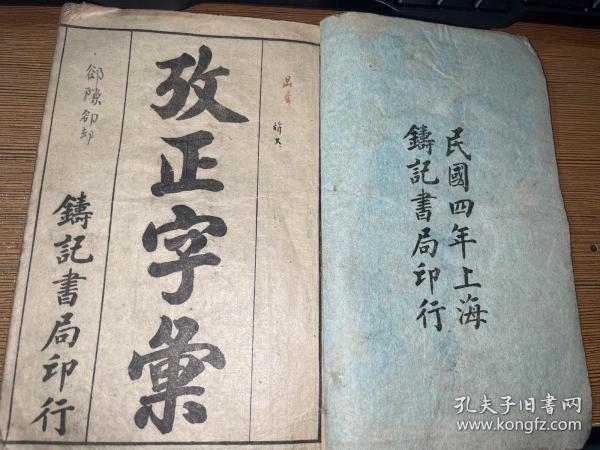 民國四年上海
鑄記書局印行
攷正字彙
鑄記書局印行
郤隙卻却
孔夫子旧书网
www.kongfz.com